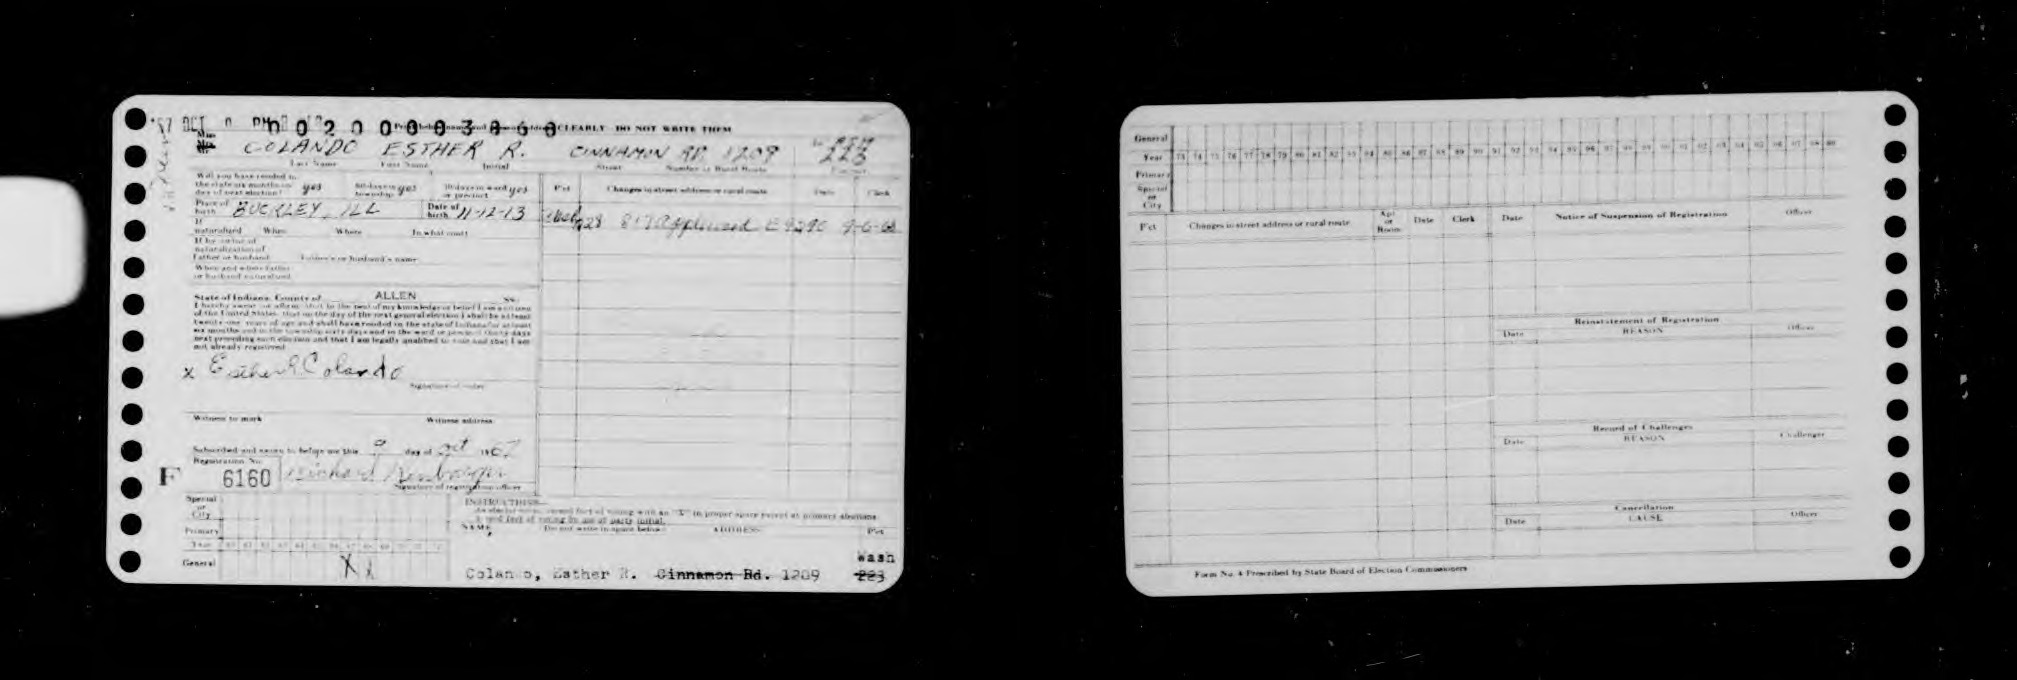 '67 OCT 9 PM
0020000386 0
CLEARLY - DO NOT WRITE THEM
COLANDO ESTHER R. CINNAMON RD. 1209 223
Last Name First Name Initial Street Number or Rural Route Precinct
Will you have resided in the state six months on day of next election? yes 60 days in township yes 30 days in ward or precinct yes
Place of birth BUCKLEY, ILL Date of birth 11-12-13
If naturalized When Where In what court
If by virtue of naturalization of Father or husband Father's or husband's name
When and where father or husband naturalized
Pct Changes in street address or rural route Date Clerk
Wash 228 817 Applewood
State of Indiana, County of ALLEN SS:
I hereby swear or affirm that to the best of my knowledge or belief I am a citizen
of the United States, that on the day of the next general election I shall be at least
twenty-one years of age and shall have resided in the state of Indiana for at least
six months and in the township sixty days and in the ward or precinct thirty days
next preceding such election and that I am legally qualified to vote and that I am
not already registered
X Esther R Colando
Signature of voter
Witness to mark Witness address
Subscribed and sworn to before me this 9 day of Oct 1967
Registration No.
F 6160 Richard
Signature of registration officer
Special or City
Primary
Year 60 61 62 63 64 65 66 67 68 69 70 71 72
General X X
INSTRUCTIONS
NAME Do not write in space below ADDRESS Pct
Wash
Colando, Esther R. Cinnamon Rd. 1209 223
General
Year 73 74 75 76 77 78 79 80 81 82 83 84 85 86 87 88 89 90 91 92 93 94 95 96 97 98 99
Primary
Special or City
Pct Changes in street address or rural route Apt or Room Date Clerk
Date Notice of Suspension of Registration Officer
Reinstatement of Registration
Date REASON Officer
Record of Challenges
Date REASON Challenger
Cancellation
Date CAUSE Officer
Form No. 4 Prescribed by State Board of Election Commissioners